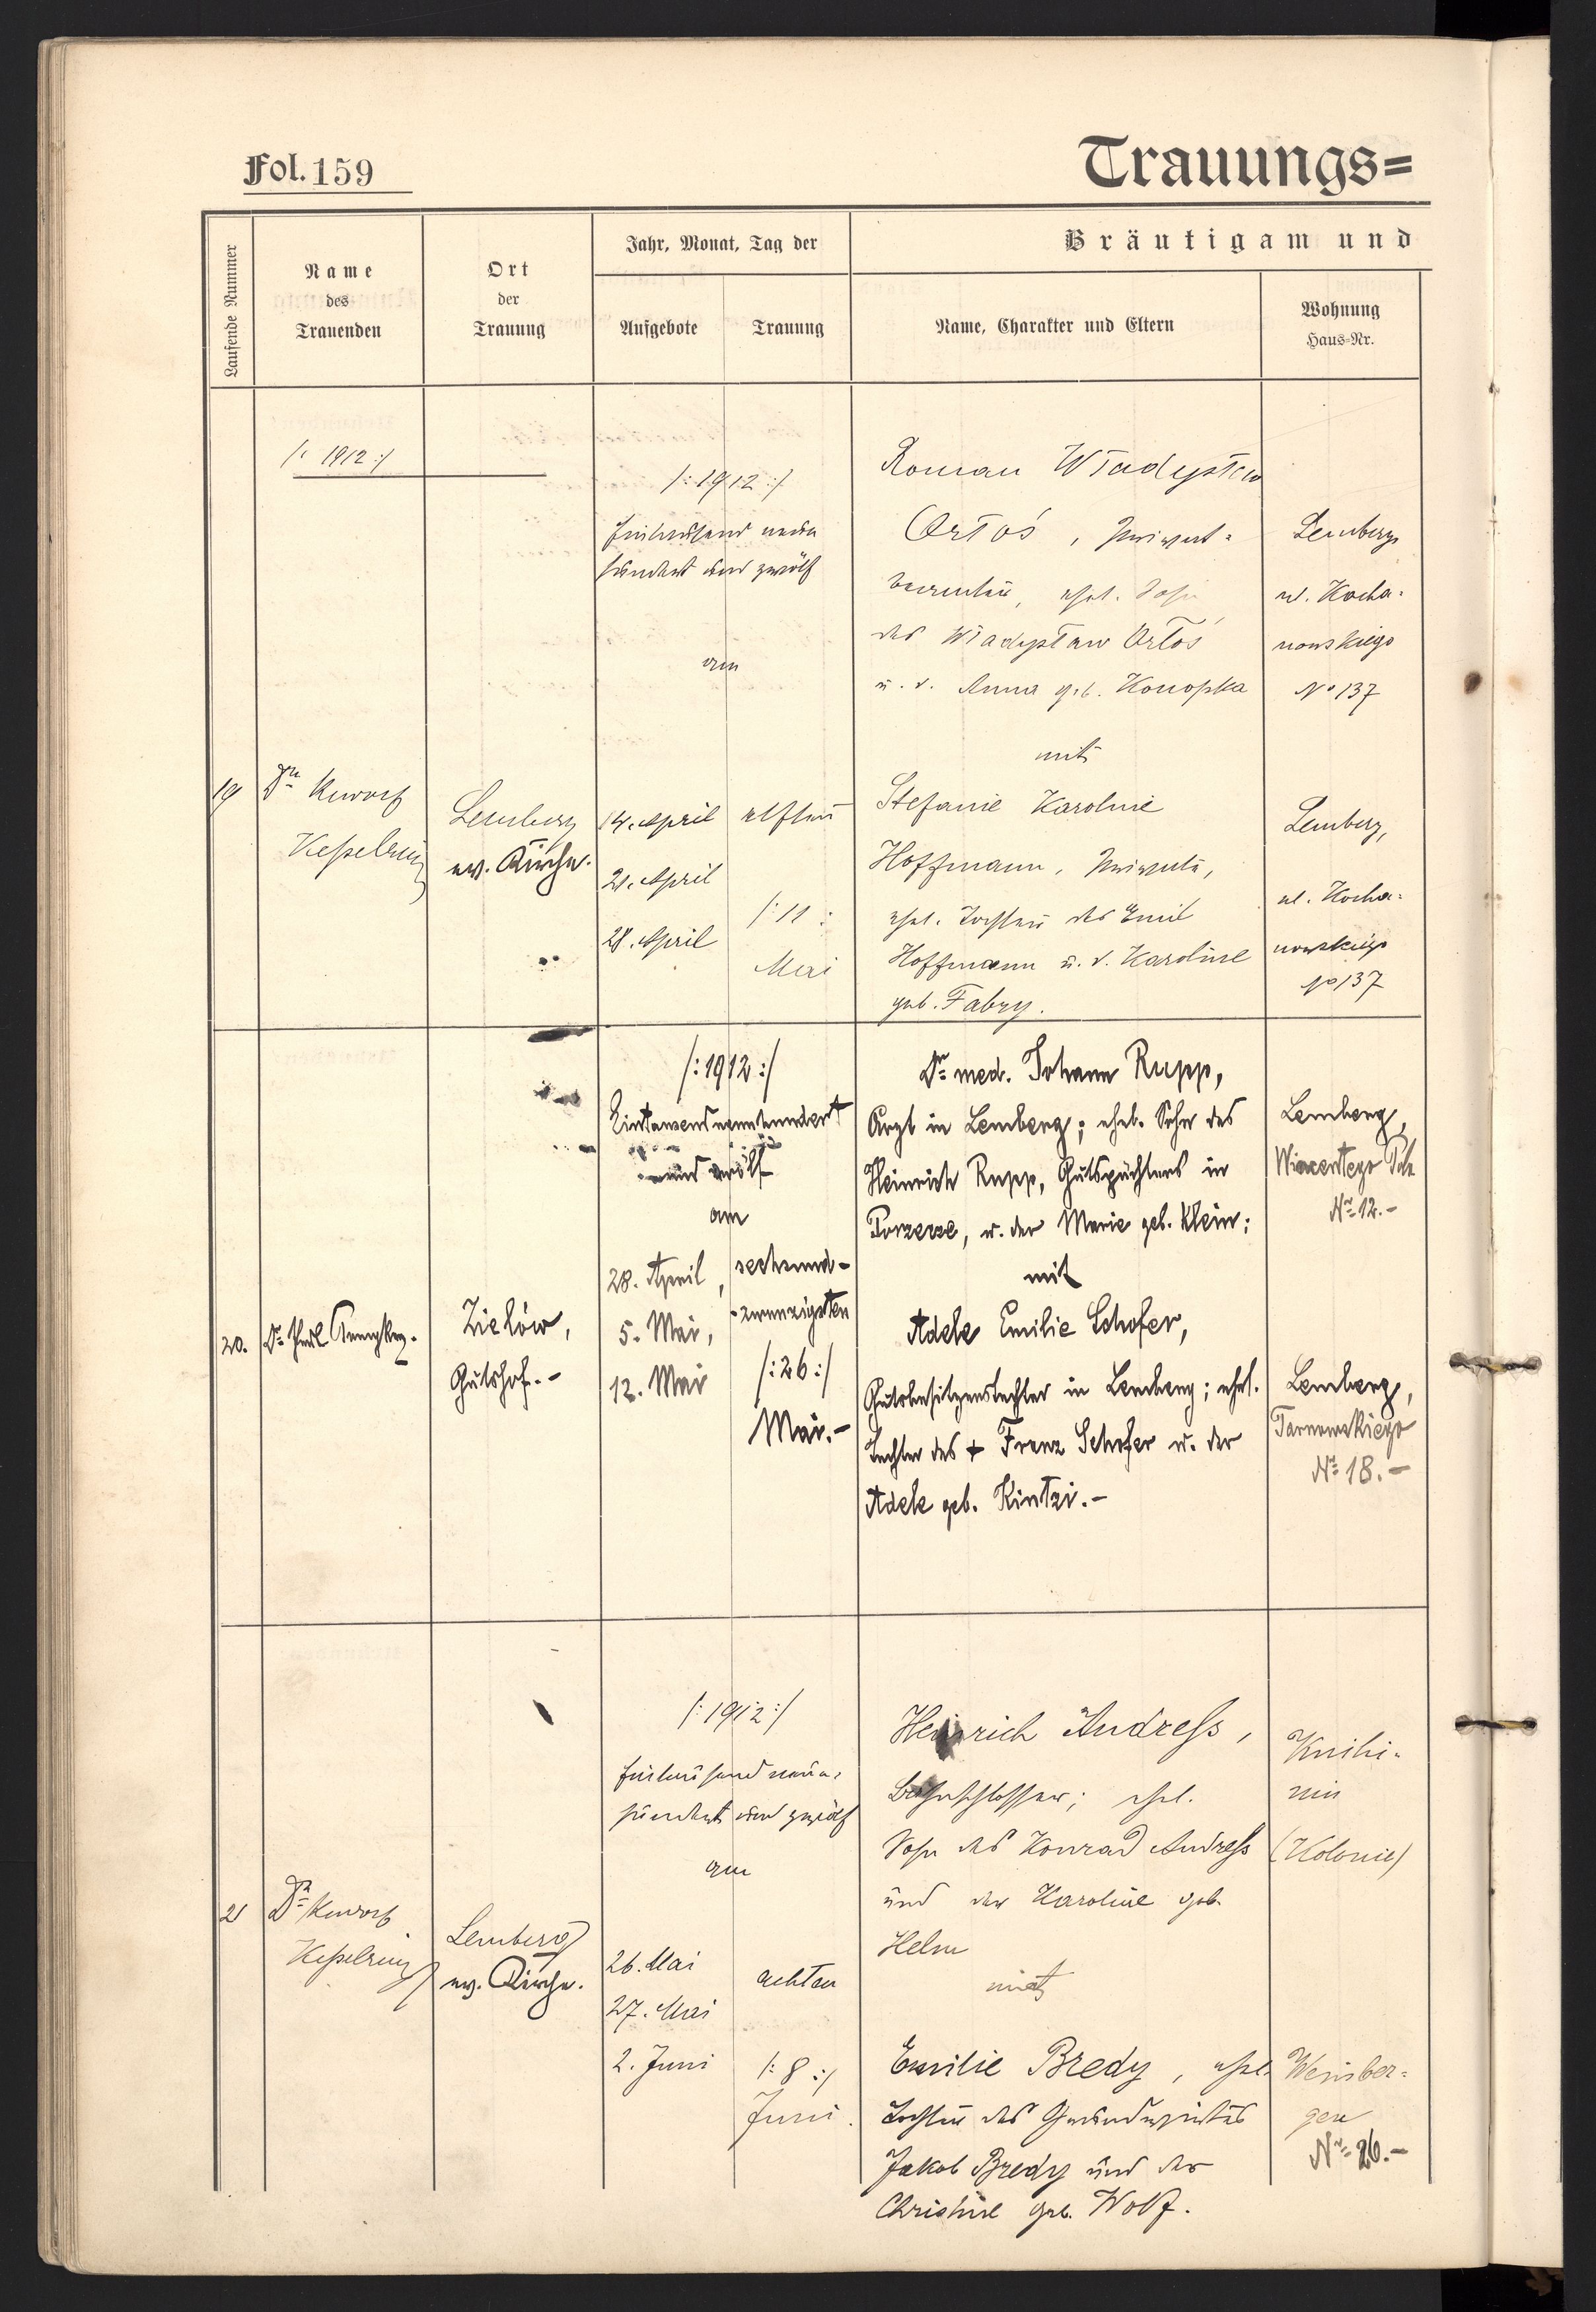 Fol. 159
Trauungs=
Laufende Nummer
Name
des
Trauenden
Ort
der
Trauung
Jahr, Monat, Tag der
Aufgebote
Trauung
Bräutigam und
Name, Charakter und Eltern
Wohnung
Haus=Nr.
/: 1912 :/
19
Dr.
Kesselring
Lemberg
ev. Kirche.
/: 1912 :/
Eintausend neun
hundert und zwölf
am
14. April
21. April
28. April
elften
/: 11 :
Mai
Roman Władysław
Ortoś, Privat=
beamter, ehel. Sohn
des Władysław Ortoś
u. d. Anna geb. Konopka
mit
Stefanie Karoline
Hoffmann, Private,
ehel. Tochter des Emil
Hoffmann u. d. Karoline
geb. Fabry.
Lemberg
ul. Kocha=
nowskiego
No 137
Lemberg,
ul. Kocha=
nowskiego
No 137
20.
Dr. Paul
Zielów,
Gutshof.-
/: 1912 :/
Eintausendneunhundert
und zwölf
am
28. April,
5. Mai,
12. Mai
sechsund-
-zwanzigsten
/: 26 :/
Mai.-
Dr. med. Johann Rupp,
Arzt in Lemberg; ehel. Sohn des
Heinrich Rupp, Gutspächters in
Porzecze, u. der Marie geb. Klein;
mit
Adele Emilie Schofer,
Gutsbesitzerstochter in Lemberg; ehel.
Tochter des + Franz Schofer u. der
Adele geb. Kintzi.-
Lemberg,
Wincentego Pola
Nr. 12.-
Lemberg,
Tarnowskiego
Nr. 18.-
21
Dr.
Kesselring
Lemberg
ev. Kirche.
/: 1912 :/
Eintausend neun=
hundert und zwölf
am
26. Mai
27. Mai
2. Juni
achten
/: 8 :/
Juni.
Heinrich Andreß,
Bauschlosser; ehel.
Sohn des Konrad Andreß
und der Karoline geb.
Helm
mit
Emilie Bredy, ehel.
Tochter des Grundwirtes
Jakob Bredy und der
Christine geb. Wolf.
Knihi=
nin
(Kolonie)
Weinber=
gen
Nr. 26.-